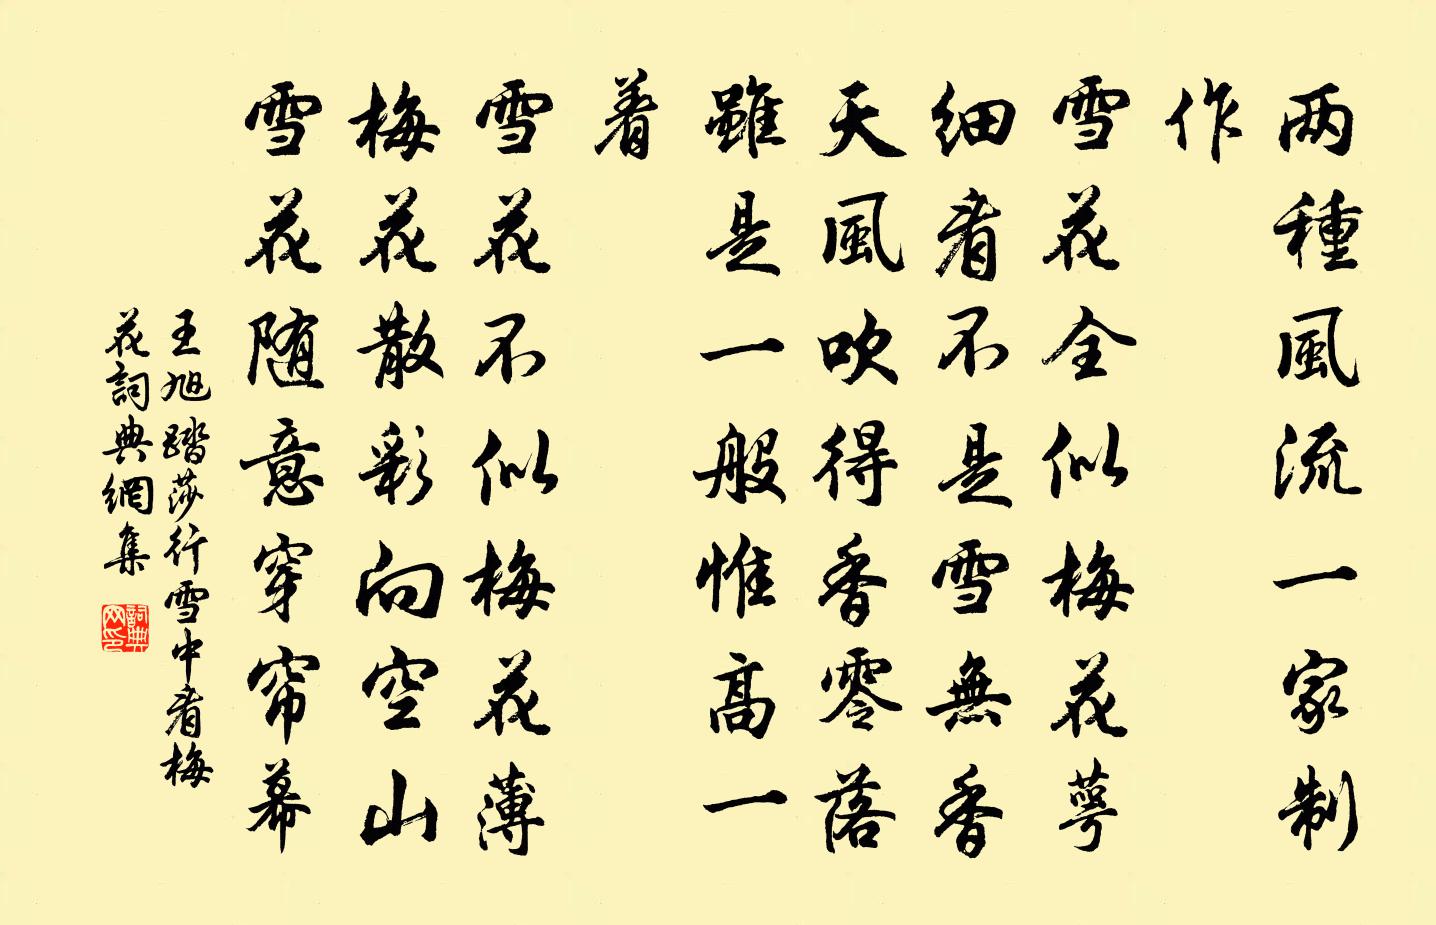 两種風流一家制
作
雪花全似梅花萼
細看不是雪無香
天風吹得香零落
雖是一般惟高一
着
雪花不似梅花薄
梅花散彩向空山
雪花随意穿帘幕
王旭踏莎行雪中看梅
花詞典網集
詞典
网印